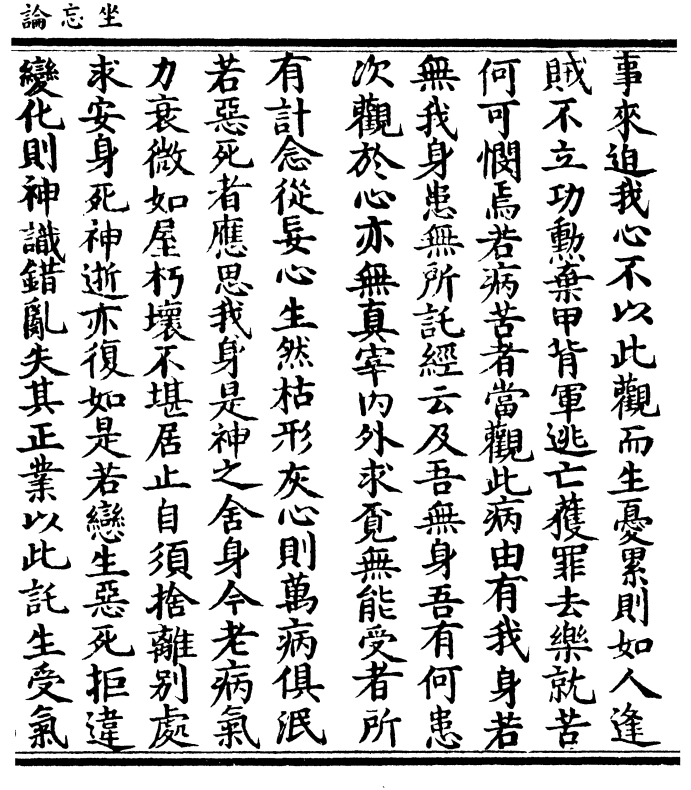 坐忘論
事來迫我心不以此觀而生憂累則如人逢
賊不立功勳棄甲背軍逃亡獲罪去樂就苦
何可憫焉若病苦者當觀此病由有我身若
無我身患無所託經云及吾無身吾有何患
次觀於心亦無真宰内外求覓無能受者所
有計念從妄心生然枯形灰心則萬病俱泯
若惡死者應思我身是神之舍身今老病氣
力衰微如屋朽壞不堪居止自須捨離别處
求安身死神逝亦復如是若戀生惡死拒違
變化則神識錯亂失其正業以此託生受氣